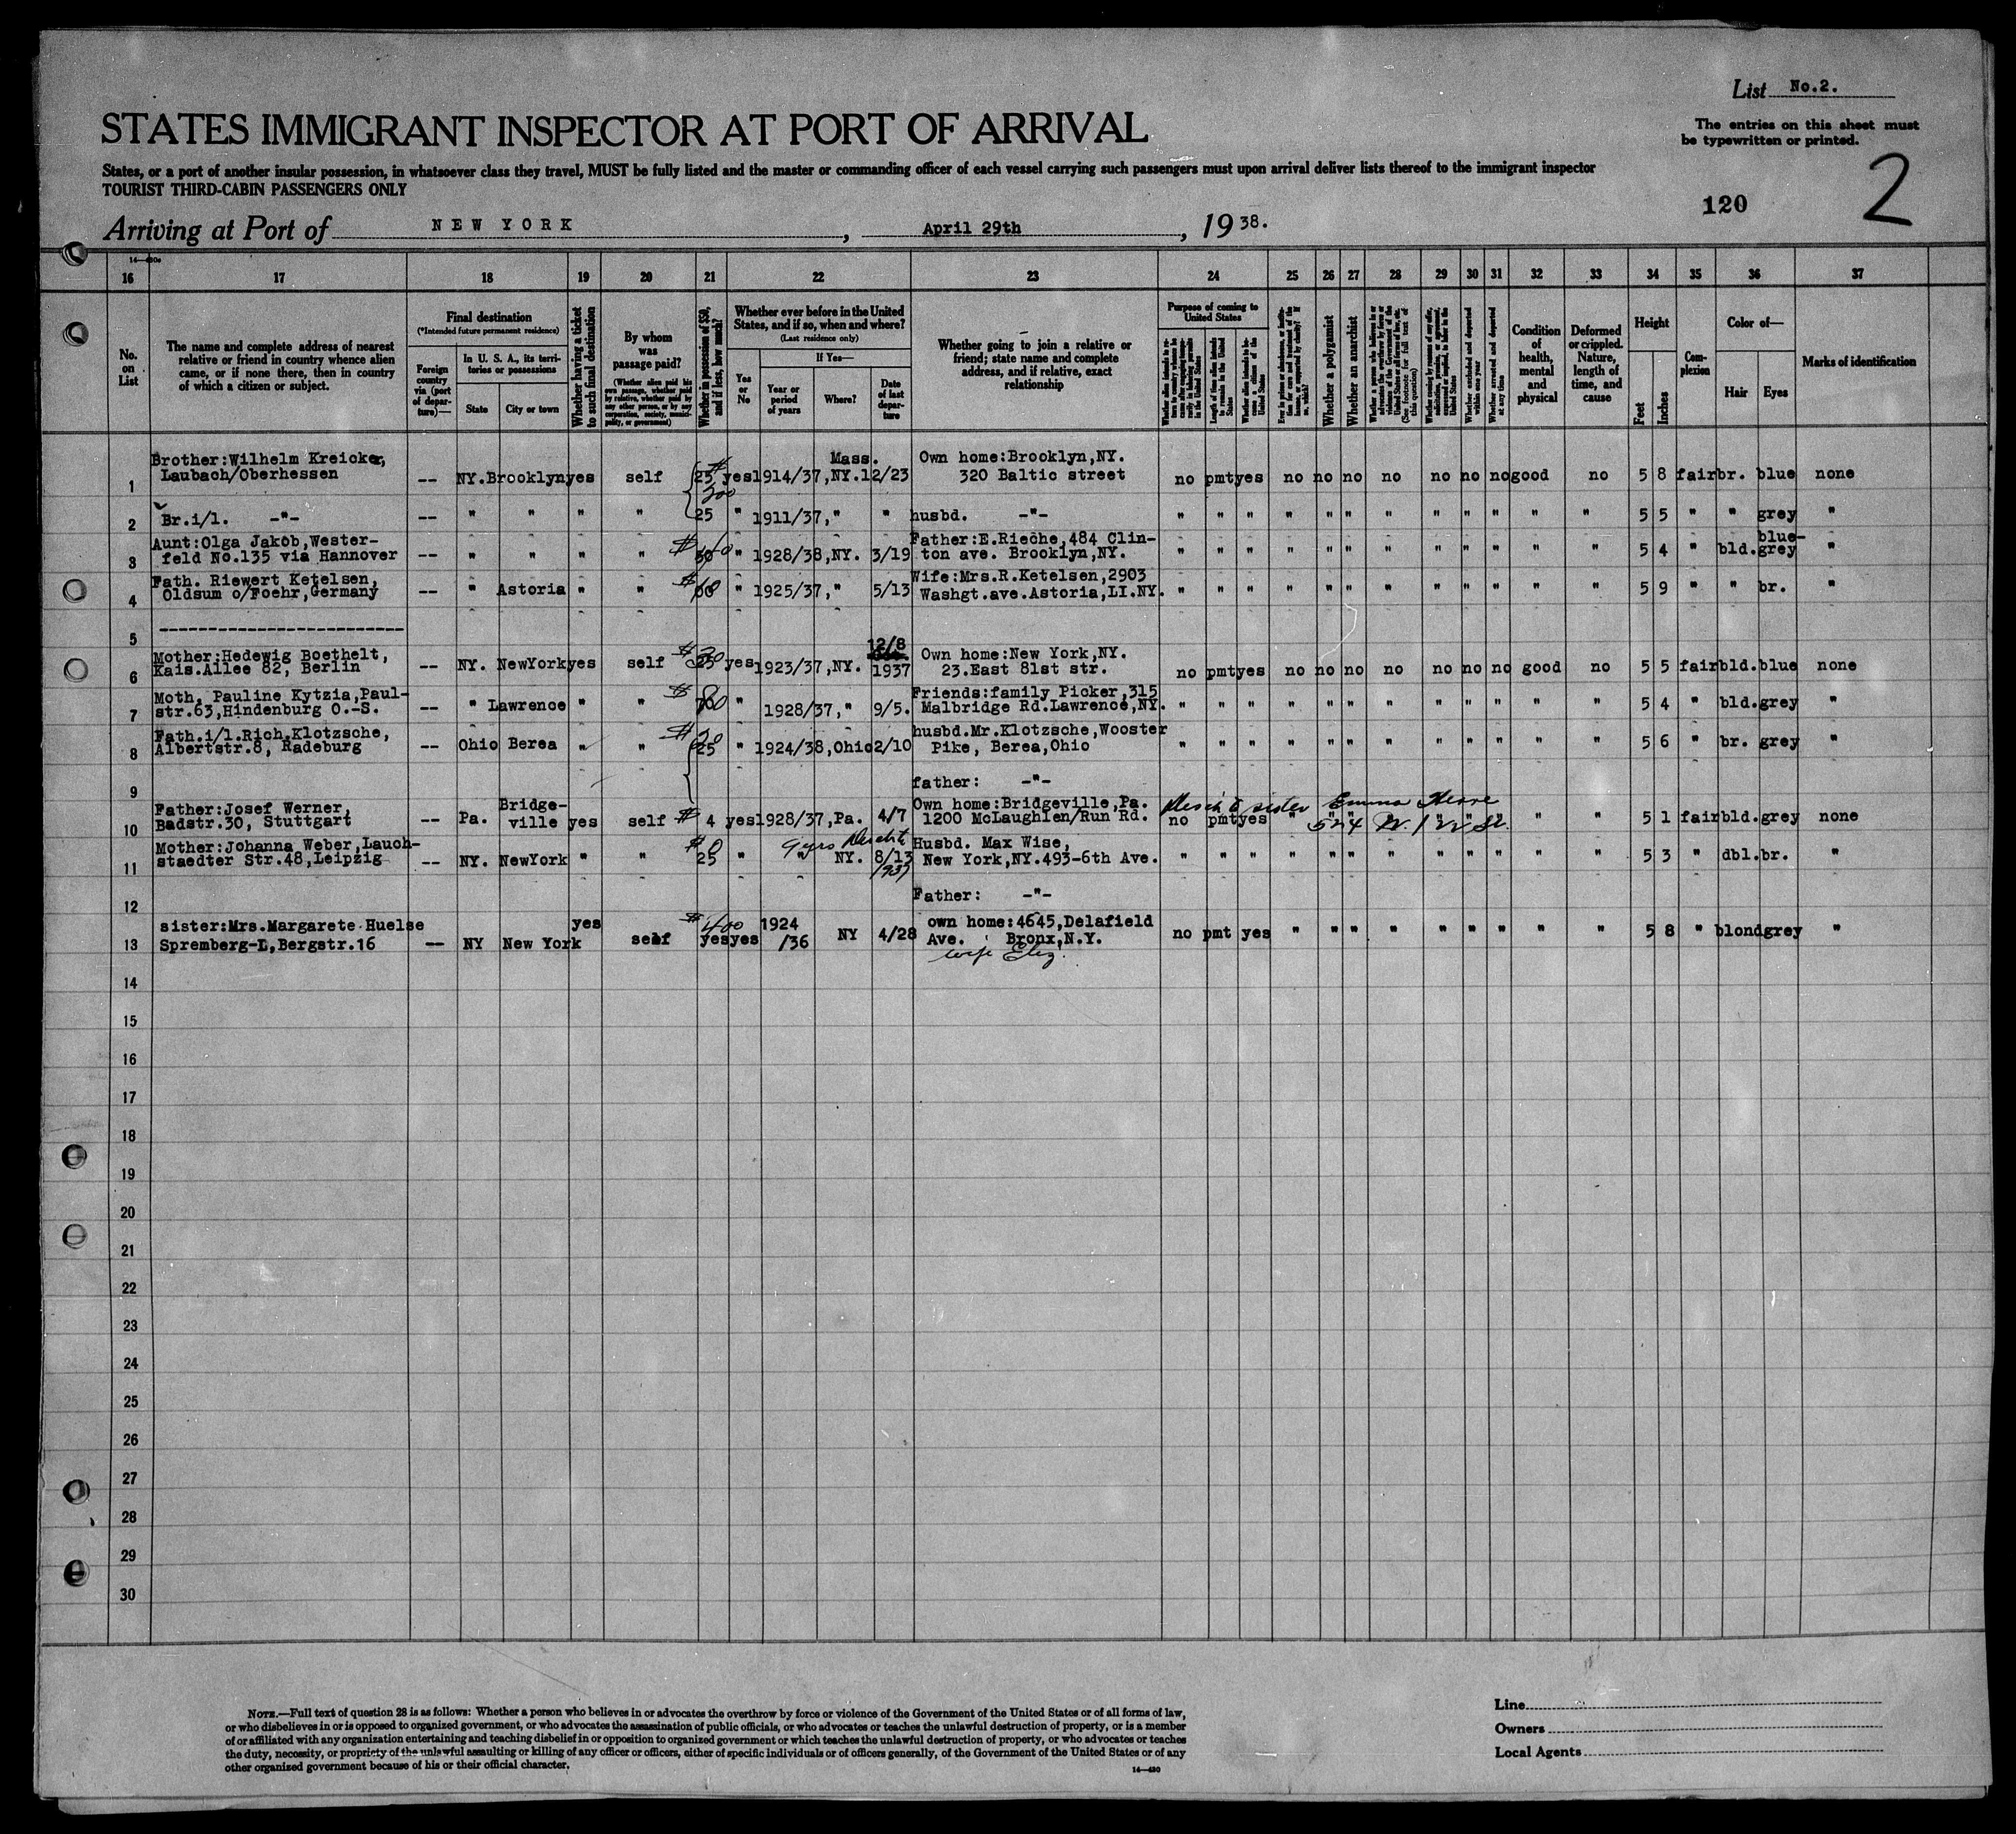 List No.2.
STATES IMMIGRANT INSPECTOR AT PORT OF ARRIVAL
The entries on this sheet must
be typewritten or printed.
States, or a port of another insular possession, in whatsoever class they travel, MUST be fully listed and the master or commanding officer of each vessel carrying such passengers must upon arrival deliver lists thereof to the immigrant inspector
TOURIST THIRD-CABIN PASSENGERS ONLY
120 2
Arriving at Port of NEW YORK, April 29th, 19 38.
16 17 18 19 20 21 22 23 24 25 26 27 28 29 30 31 32 33 34 35 36 37
No. on List
The name and complete address of nearest
relative or friend in country whence alien
came, or if none there, then in country
of which a citizen or subject.
Final destination
(*Intended future permanent residence)
Foreign country via (port of departure)—
In U. S. A., its territories or possessions
State City or town
Whether having a ticket to such final destination
By whom was passage paid?
(Whether alien paid his own passage, whether paid by relative, whether paid by any other person, or by any corporation, society, municipality, or government)
Whether in possession of $50, and if less, how much?
Whether ever before in the United
States, and if so, when and where?
(Last residence only)
Yes or No
If Yes—
Year or period of years
Where?
Date of last departure
Whether going to join a relative or
friend; state name and complete
address, and if relative, exact
relationship
Purpose of coming to United States
Length of time alien intends to remain in the United States
Whether alien intends to become a citizen of the United States
Whether a polygamist
Whether an anarchist
Whether excluded and deported within one year
Whether arrested and deported at any time
Condition of health, mental and physical
Deformed or crippled. Nature, length of time, and cause
Height
Feet Inches
Complexion
Color of—
Hair Eyes
Marks of identification
Brother:Wilhelm Kreicker, Mass. Own home:Brooklyn,NY.
1 Laubach/Oberhessen -- NY. Brooklyn yes self 25 yes 1914/37,NY. 12/23 320 Baltic street no pmt yes no no no no no no no good no 5 8 fair br. blue none
2 Br.i/l. -"- -- " " " " 25 " 1911/37," " husbd. -"- " " " " " " " " " " " " 5 5 " " grey "
Aunt:Olga Jakob,Wester- Father:E.Rieche,484 Clin- blue-
3 feld No.135 via Hannover -- " " " " " 1928/38,NY. 3/19 ton ave. Brooklyn,NY. " " " " " " " " " " " " 5 4 " bld. grey "
Fath. Riewert Ketelsen, Wife:Mrs.R.Ketelsen,2903
4 Oldsum o/Foehr,Germany -- " Astoria " " " 1925/37," 5/13 Washgt.ave.Astoria,LI.NY. " " " " " " " " " " " " 5 9 " " br. "
5 --------------------------
Mother:Hedewig Boethelt, 12/8 Own home:New York,NY.
6 Kais.Allee 82, Berlin -- NY. NewYork yes self 25 yes 1923/37,NY. 1937 23.East 81st str. no pmt yes no no no no no no no good no 5 5 fair bld. blue none
Moth, Pauline Kytzia,Paul- Friends:family Picker,315
7 str.63,Hindenburg O.-S. -- " Lawrence " " " 1928/37," 9/5. Malbridge Rd.Lawrence,NY. " " " " " " " " " " " " 5 4 " bld. grey "
Fath.i/l.Rich.Klotzsche, husbd.Mr.Klotzsche,Wooster
8 Albertstr.8, Radeburg -- Ohio Berea " " 25 " 1924/38,Ohio 2/10 Pike, Berea,Ohio " " " " " " " " " " " " 5 6 " br. grey "
9 father: -"-
Father:Josef Werner, Bridge- Own home:Bridgeville,Pa. sister Emma
10 Badstr.30, Stuttgart -- Pa. ville yes self $ 4 yes 1928/37,Pa. 4/7 1200 McLaughlen/Run Rd. no pmt yes " 524 W. 122 St. " " 5 1 fair bld. grey none
Mother:Johanna Weber,Lauch- 9 yrs Husbd. Max Wise,
11 staedter Str.48,Leipzig -- NY. NewYork " " 25 " " NY. 8/13 1937 New York,NY.493-6th Ave. " " " " " " " " " " " " 5 3 " dbl. br. "
12 Father: -"-
sister:Mrs.Margarete Huelse yes $ 400 1924 own home:4645,Delafield
13 Spremberg-L,Bergstr.16 -- NY New York self yes yes /36 NY 4/28 Ave. Bronx,N.Y. no pmt yes " " " " " " " " " 5 8 " blond grey "
wife Eliz.
14
15
16
17
18
19
20
21
22
23
24
25
26
27
28
29
30
NOTE.—Full text of question 28 is as follows: Whether a person who believes in or advocates the overthrow by force or violence of the Government of the United States or of all forms of law,
or who disbelieves in or is opposed to organized government, or who advocates the assassination of public officials, or who advocates or teaches the unlawful destruction of property, or is a member
of or affiliated with any organization entertaining and teaching disbelief in or opposition to organized government or which teaches the unlawful destruction of property, or who advocates or teaches
the duty, necessity, or propriety of the unlawful assaulting or killing of any officer or officers, either of specific individuals or of officers generally, of the Government of the United States or of any
other organized government because of his or their official character.
14—430
Line
Owners
Local Agents